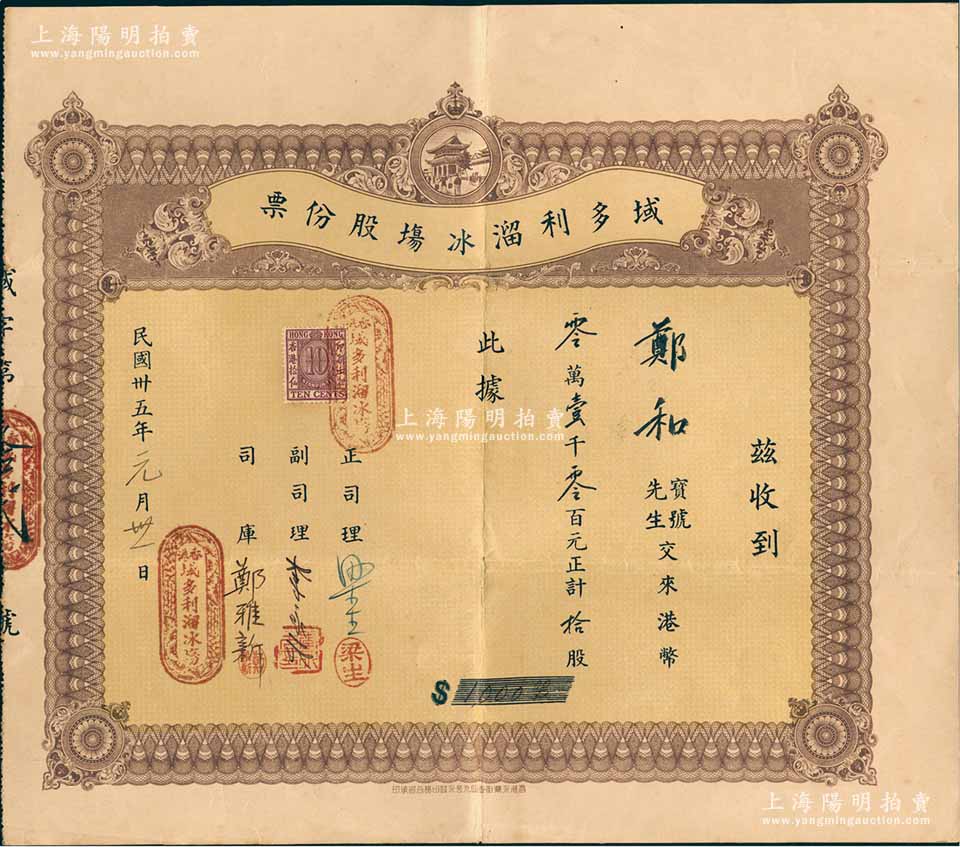 上海陽明拍賣
www.yangmingauction.com
域多利溜冰塲股份票
茲收到
鄭和寶號先生交來港幣
零萬壹千零百元正計拾股
此據
正司理
梁生
副司理
司庫鄭雅新
民國卅五年元月卅一日
HONG KONG
10
TEN CENTS
香港
域多利溜冰塲
香港
域多利溜冰塲
$ 1,000
域字第
號
上海陽明拍賣
www.yangmingauction.com
上海陽明拍賣
www.yangmingauction.com